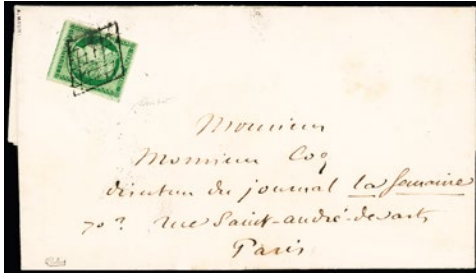 Monsieur
Monsieur Coq
directeur du journal la Semaine
70? rue Saint-andré-des-arts
Paris